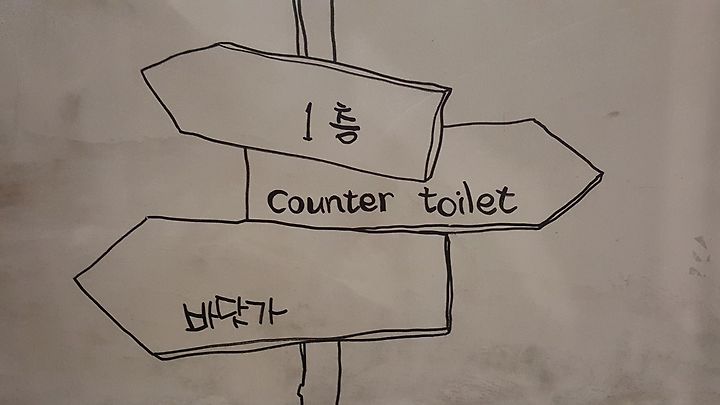 1층
Counter toilet
바닷가